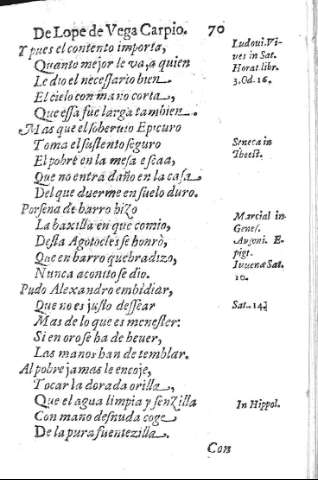 De Lope de Vega Carpio. 70
Y pues el contento importa,
Quanto mejor le va, a quien
Le dio el necessario bien
El cielo con mano corta,
Que essa fue larga tambien.
Mas que el soberuio Epicuro
Toma el sustento seguro
El pobre en la mesa escaa,
Que no entra daño en la casa
Del que duerme en suelo duro.
Porsena de barro hizo
La baxilla en que comio,
Desta Agotocles se honrò,
Que en barro quebradizo,
Nunca aconito se dio.
Pudo Alexandro embidiar,
Que no es justo dessear
Mas de lo que es menester:
Si en oro se ha de beuer,
Las manos han de temblar.
Al pobre jamas le encoje,
Tocar la dorada orilla,
Que el agua limpia y senzilla
Con mano desnuda coge
De la pura fuentezilla.
Con
Ludoui. Vi-
ues in Sat.
Horat. libr.
3. Od. 16.
Seneca in
Thiest.
Marcial in
Genes.
Ausoni. E-
pigr.
Iuuenà Sat.
10.
Sat. 14.
In Hippol.